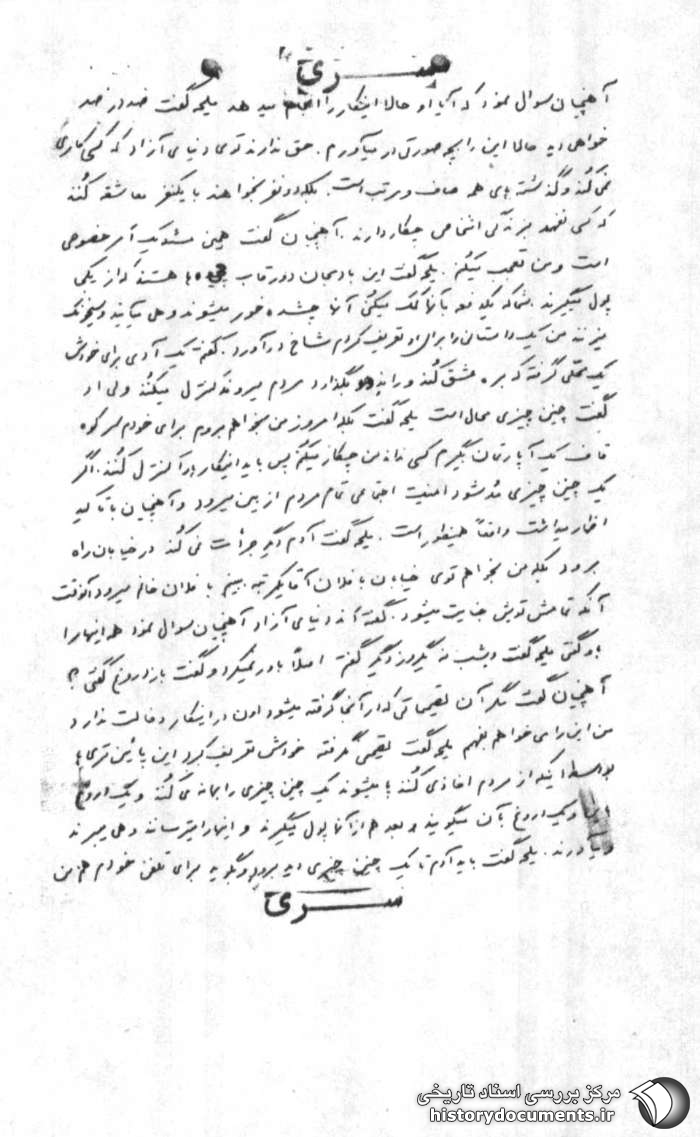 سری
آهنچیان سوال نمود که آیا او حالا اینکار را انجام میدهد ملیحه گفت صد در صد
خواهی دید حالا این را بچه صورتی در میآورم. حق ندارند توی دنیای آزاد که کسی کاری
نمی کند و گذشته های همه صاف و مرتب است. بلکه دو نفر بخواهند با یکنفر معاشقه کنند
که کسی نفهمد بزندگی اشخاص چکار دارند. آهنچیان گفت همین مسئله یک امر خصوصی
است و من تعجب میکنم. ملیحه گفت این بادمجان دور قاب چین ها هستند که از یکی
پول میگیرند کمک میکنی آنها چشده خور میشوند وهی میآیند و
میزنند من یک داستانی را برای او تعریف کردم شاخ در آورد. گفتم یک آدمی برای خودش
یک محلی گرفته که بره عشق کند و را نمیگذارد مردم میروند کنترل میکنند ولی او
گفت چنین چیزی محال است ملیحه گفت بلکه امروز من بخواهم بروم برای خودم سر کوه
قاف یک آپارتمان بگیرم کسی نداند من چکار میکنم پس باید اینکار را کنترل کنند. اگر
یک چنین چیزی مد شود امنیت اجتماعی تمام مردم از بین میرود و آهنچیان با تاکید
اظهار میداشت واقعاً همینطور است. ملیحه گفت آدم دیگر جرأت نمی کند در خیابان راه
برود بلکه من بخواهم توی خیابان با فلان آقا یکمرتبه ببینم با فلان خانم میرود آنوقت
آنکه تمامش تویش جنایت میشود. گفتم آن دنیای آزاد آهنچیان سوال نمود همه اینها را
باو گفتی ملیحه گفت دیشب نه پریروز دیگر گفتم اصلاً باور نمیکرد و گفت باز دروغ گفتی؟
آهنچیان گفت مگر آن تصمیماتی که از آنجا گرفته میشود اون در اینکار دخالت ندارد
من این را می خواهم بفهمم ملیحه گفت تصمیمی نگرفته خودش تعریف کرد این پائین تری ها
بواسطه اینکه از مردم اخاذی کنند با میشوند یک چنین چیزی را بهانه می کنند و یک دروغ
و یک دروغ بآن میگویند و بعد هم از آنها پول میگیرند و اینها را میترسانند وهی میبرند
و میآورند. ملیحه گفت باید آدم تا یک چنین چیزی دید برود و بگوید برای تلفن خودم هم من
سری
مرکز بررسی اسناد تاریخی
historydocuments.ir